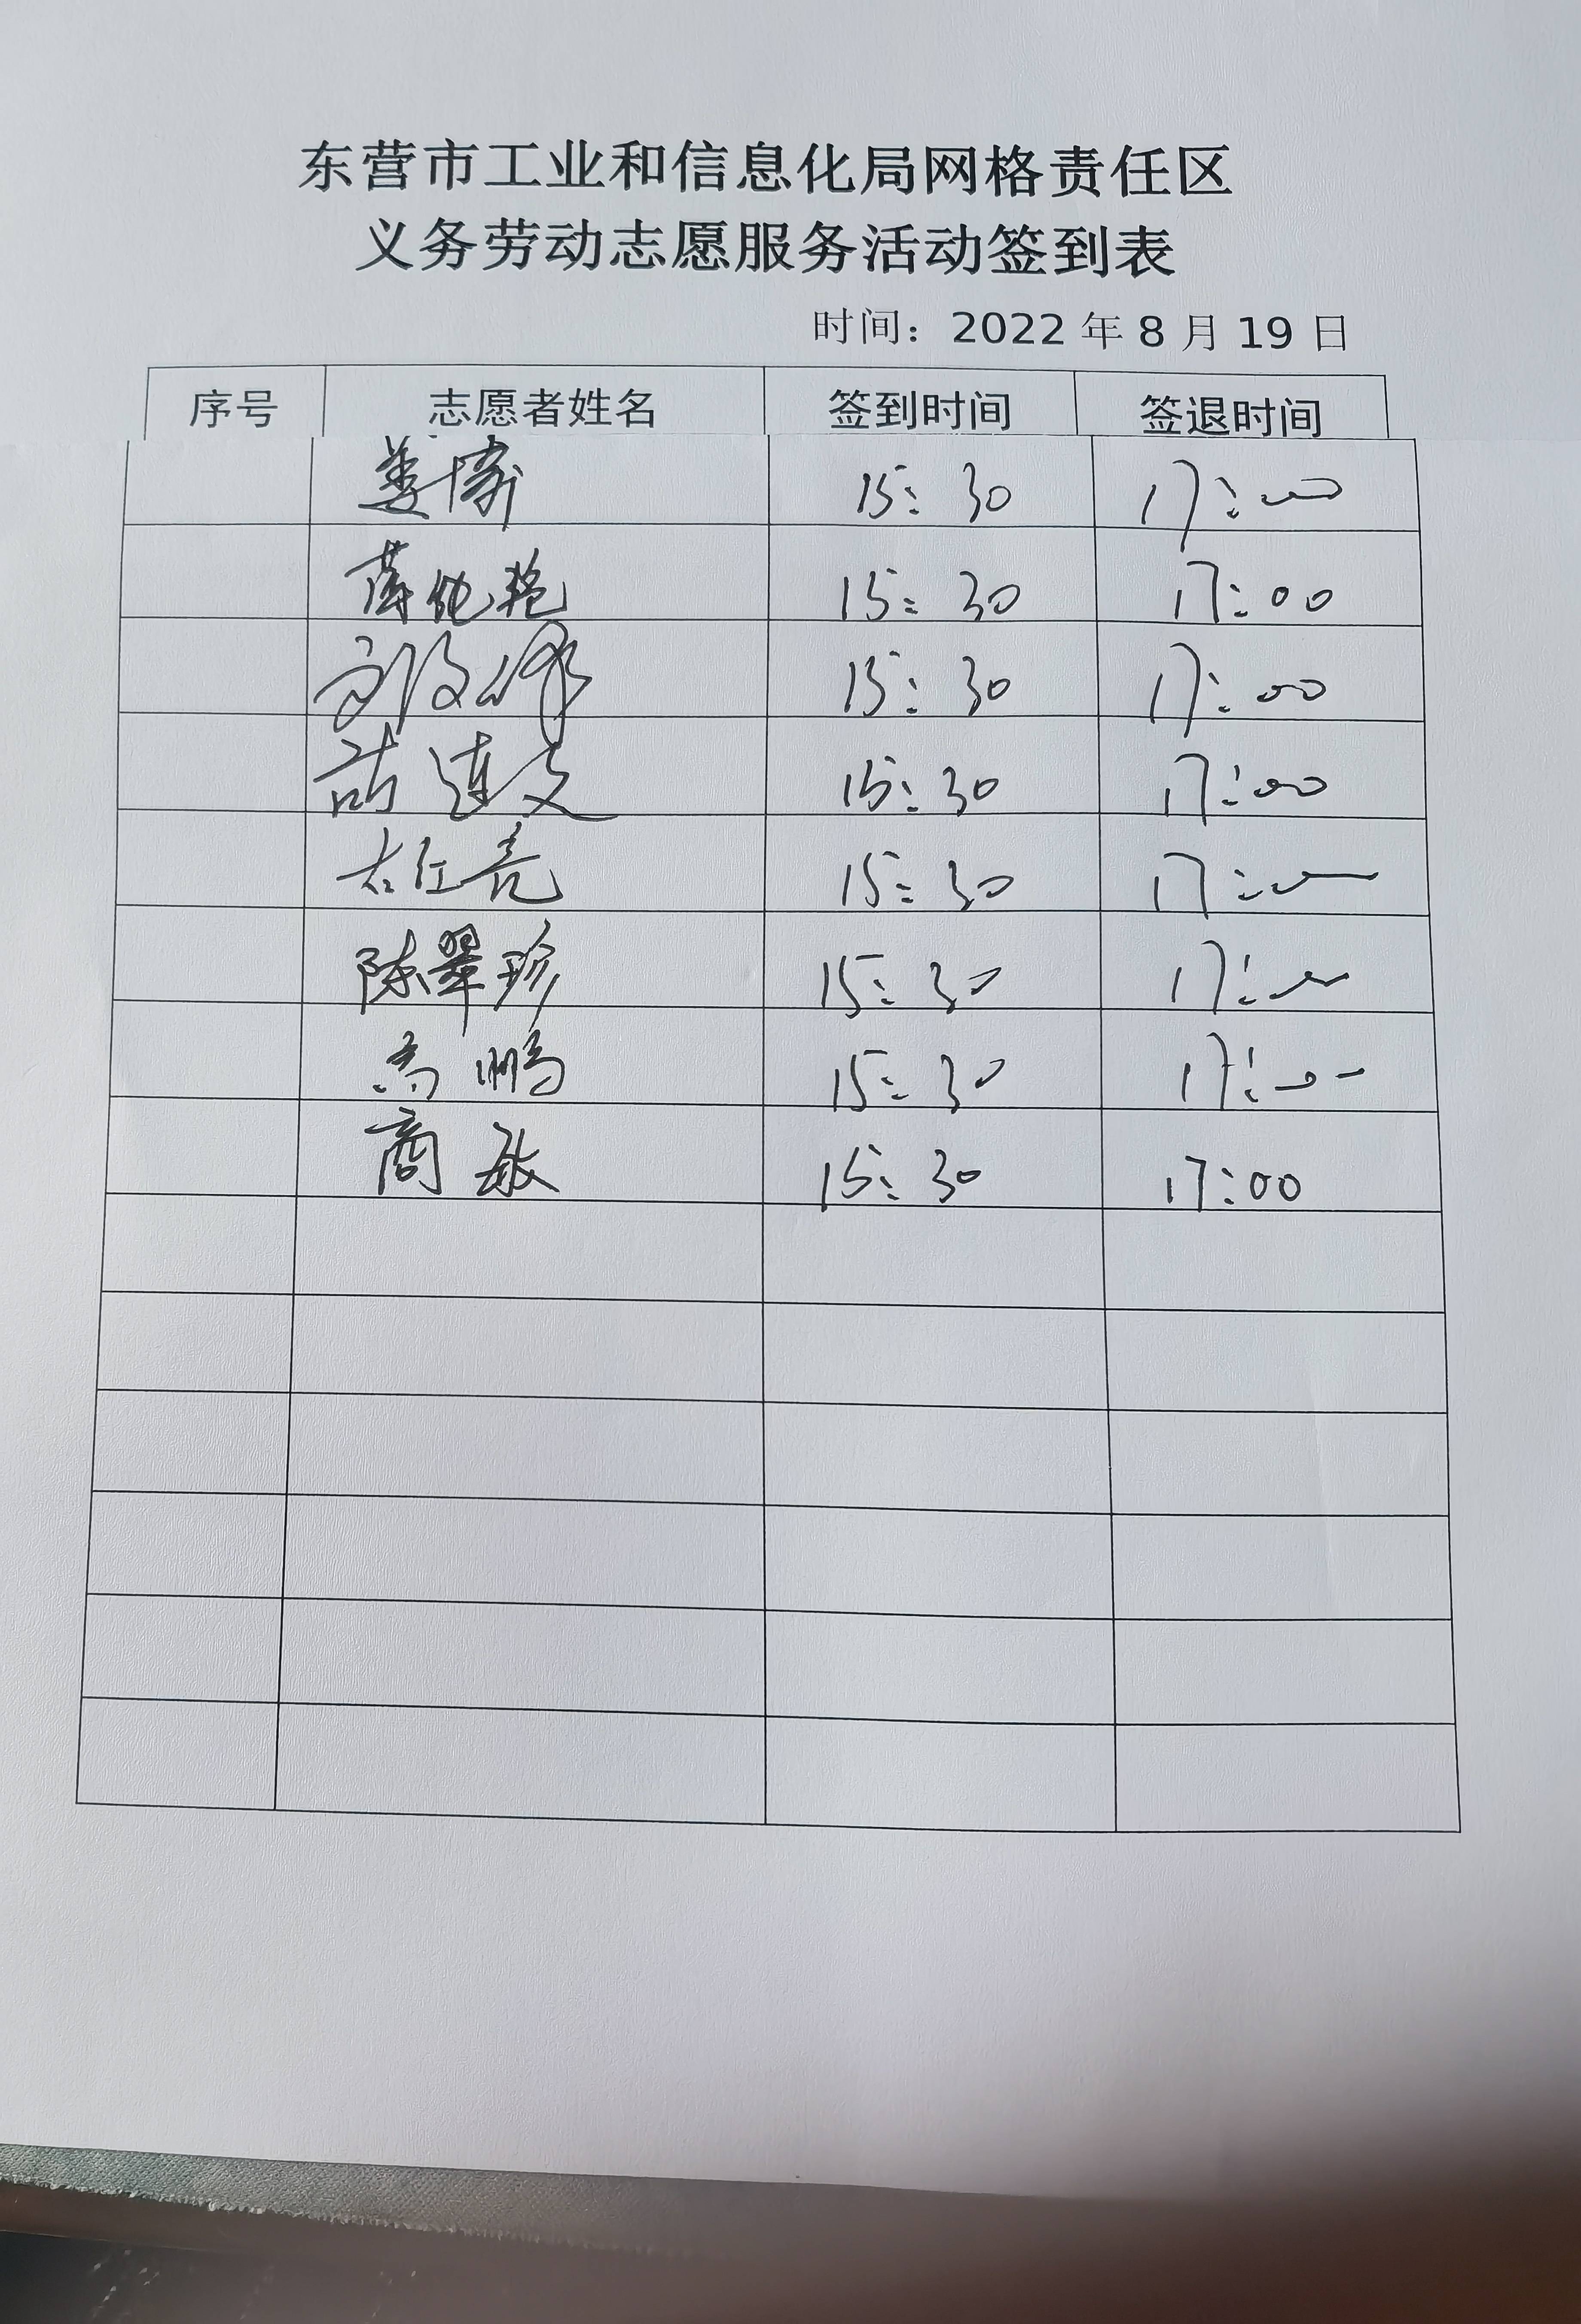 东营市工业和信息化局网格责任区
义务劳动志愿服务活动签到表
时间：2022 年 8 月 19 日
序号 志愿者姓名 签到时间 签退时间
15:30 17:00
15:30 17:00
15:30 17:00
15:30 17:00
15:30 17:00
陈翠珍 15:30 17:00
高鹏 15:30 17:00
商敏 15:30 17:00